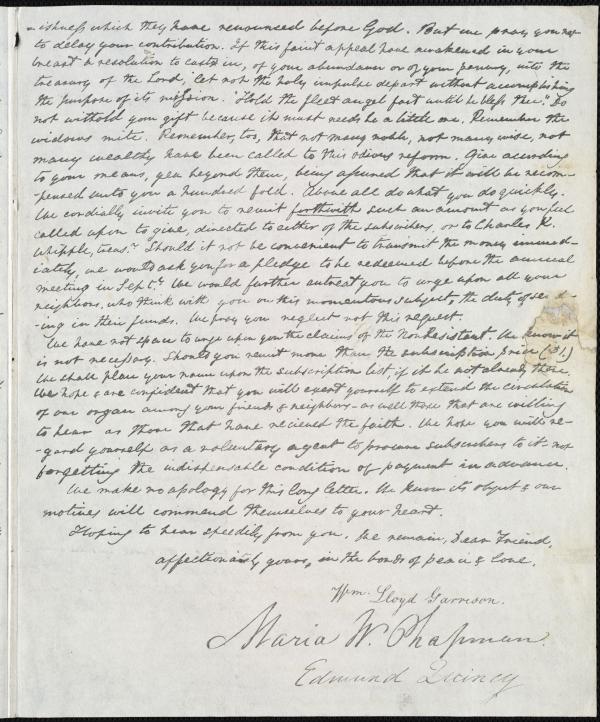 -ishness which they have renounced before God. But we pray you not
to delay your contribution. If this faint appeal have awakened in your
breast a resolution to cast in, of your abundance or of your penury, into the
treasury of the Lord, let not the holy impulse depart without accomplishing
the purpose of its mission. "Hold the fleet angel fast until he bless thee." Do
not withold your gift because its must needs be a little one. Remember the
widows mite. Remember, too, that not many noble, not many wise, not
many wealthy have been called to this odious reform. Give according
to your means, yea beyond them, being assured that it will be recom-
-pensed unto you a hundred fold. Above all do what you do quickly.
We cordially invite you to remit forthwith such an amount as you feel
called upon to give, directed to either of the subscribers, or to Charles K.
Whipple, treas.r Should it not be convenient to transmit the money immed-
iately, we would ask you for a pledge to be redeemed before the annual
meeting in Sept.r We would further entreat you to urge upon all your
neighbors, who think with you on this momentous subject, the duty of send-
-ing in their funds. We pray you neglect not this request.
We have not space to urge upon you the claims of the Non Resistant. We know it
is not necessary. Should you remit more than the subscription price ($1.)
We shall place your name upon the subscription list if it be not already there.
We hope & are confident that you will exert yourself to extend the circulation
of our organ among your friends & neighbors - as well those that are willing
to hear as those that have recieved the faith. We hope you will re-
-gard yourself as a voluntary agent to procure subscribers to it - not
forgetting the indispensable condition of payment in advance.
We make no apology for this long letter. We know its object & our
motives will commend themselves to your heart.
Hoping to hear speedily from you. We remain, Dear Friend,
affectionately yours, in the bonds of peace & love.
Wm. Lloyd Garrison.
Maria W. Chapman.
Edmund Quincy